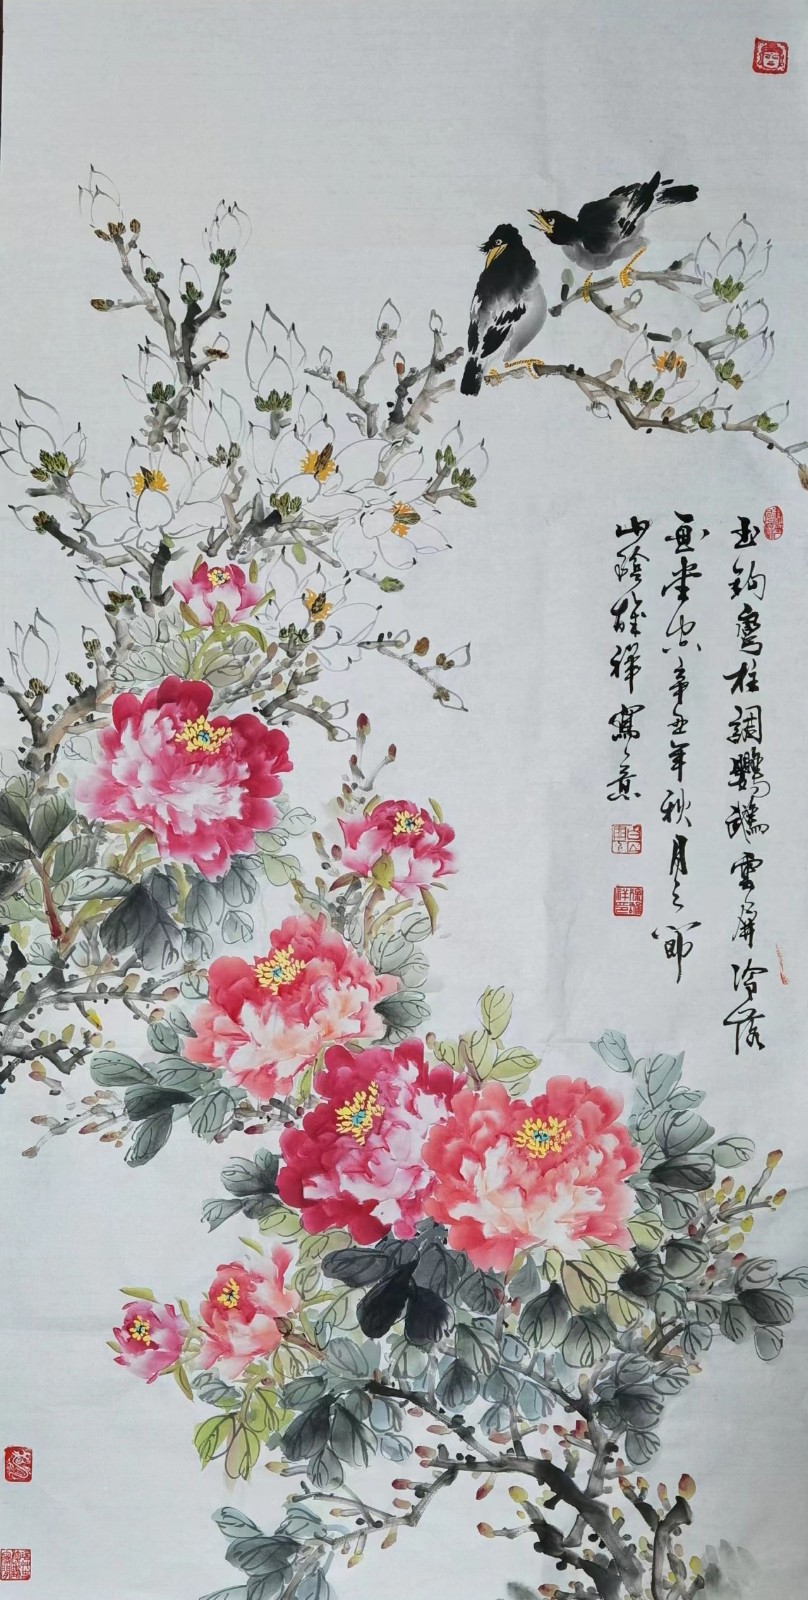 玉鈎鸾柱調鸚鵡雲屏冷落
画堂空辛丑年秋月之節
山陰雄祥寫意